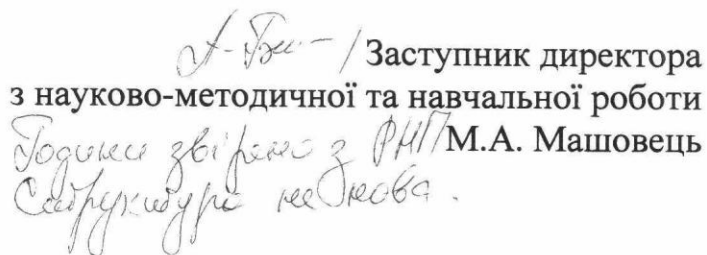 Заступник директора
з науково-методичної та навчальної роботи
Години звірено з РНП М.А. Машовець
Структура не нова.